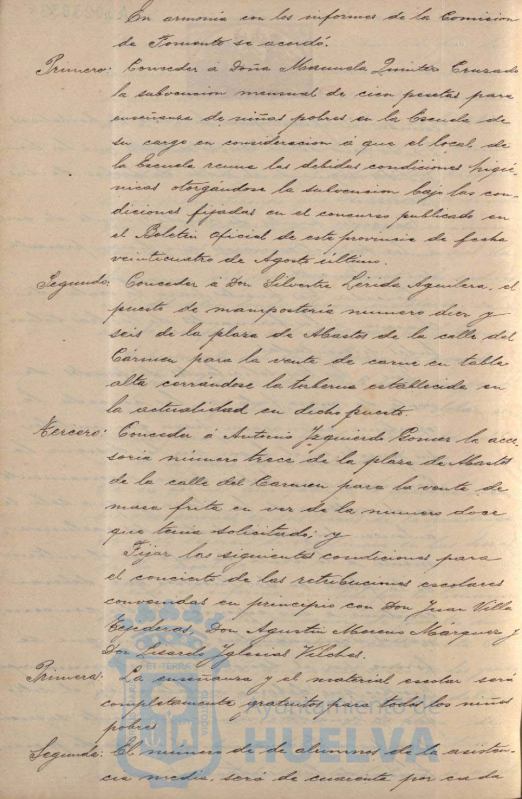 En armonía con los informes de la Comision
de Fomento se acordó.
Primero: Conceder á Doña Manuela Quintero Cruzado
la subvencion mensual de cien pesetas para
enseñanza de niñas pobres en la Escuela de
su cargo en consideracion á que el local de
la Escuela reune las debidas condiciones higié-
nicas otorgándose la subvencion bajo las con-
diciones fijadas en el concurso publicado en
el Boletin Oficial de esta provincia de fecha
veinticuatro de Agosto último.
Segundo: Conceder á Don Silvestre Lérida Aguilera, el
puesto de mampostería numero diez y
seis de la plaza de Abastos de la calle del
Cármen para la venta de carne en tabla
alta cerrándose la taberna establecida en
la actualidad en dicho puesto.
Tercero: Conceder á Antonio Izquierdo Gomez la acce-
soria número trece de la plaza de Abastos
de la calle del Carmen para la venta de
masa frita en vez de la numero doce
que tenia solicitado; y
Fijar las siguientes condiciones para
el concierto de las retribuciones escolares
convenidas en principio con Don Juan Villa
Don Agustin Moreno Márquez y
Don Lisardo Yglesias Vilches.
Primera: La enseñanza y el material escolar será
completamente gratuitos para todos los niños
pobres
Segunda: El número de de alumnos de la asisten-
cia media, será de cuarenta por cada
Ayuntamiento de
HUELVA